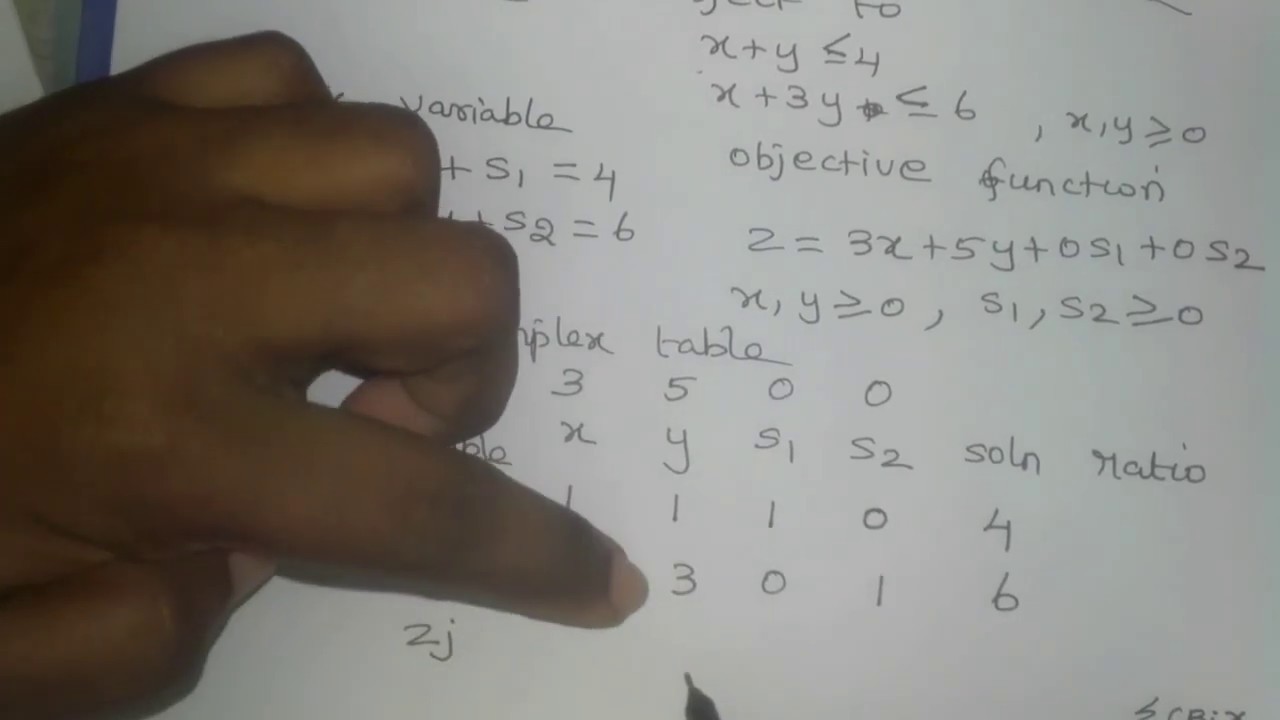 to
x+y ≤4
x+3y ≤ 6 , x,y≥0
variable
+ S1 = 4
+S2 = 6
objective function
Z = 3x+5y+0S1+0S2
x, y≥0, S1, S2≥0
table
3 5 0 0
x y S1 S2 soln ratio
1 1 1 0 4
3 0 1 6
Zj